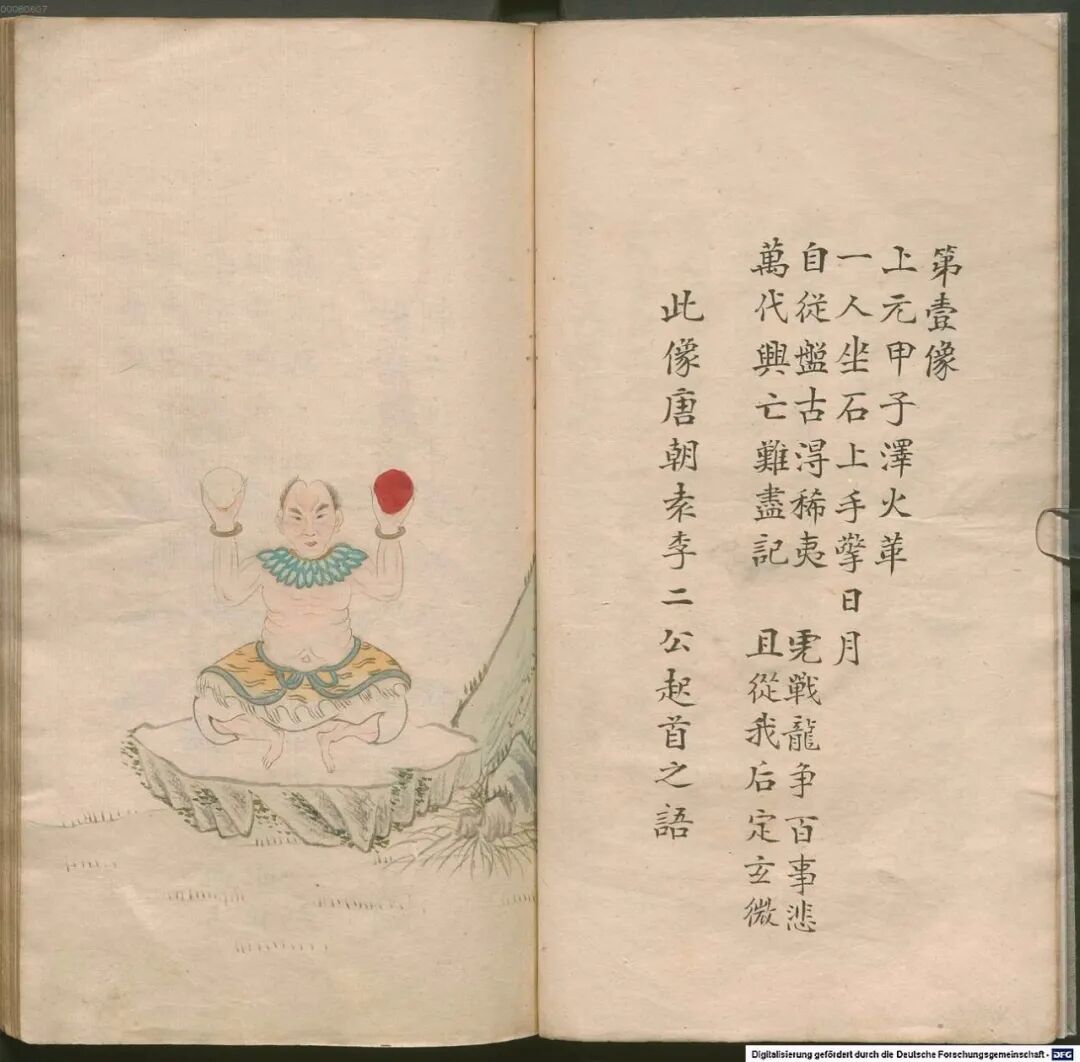 第壹像
上元甲子澤火革
一人坐石上手擎日月
自從盤古得稀夷 虎戰龍争百事悲
萬代興亡難盡記 且從我后定玄微
此像唐朝袁李二公起首之語
00080607
Digitalisierung gefördert durch die Deutsche Forschungsgemeinschaft - DFG